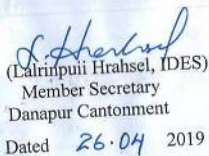 (Lalrinpuii Hrahsel, IDES)
Member Secretary
Danapur Cantonment
Dated 26.04 2019